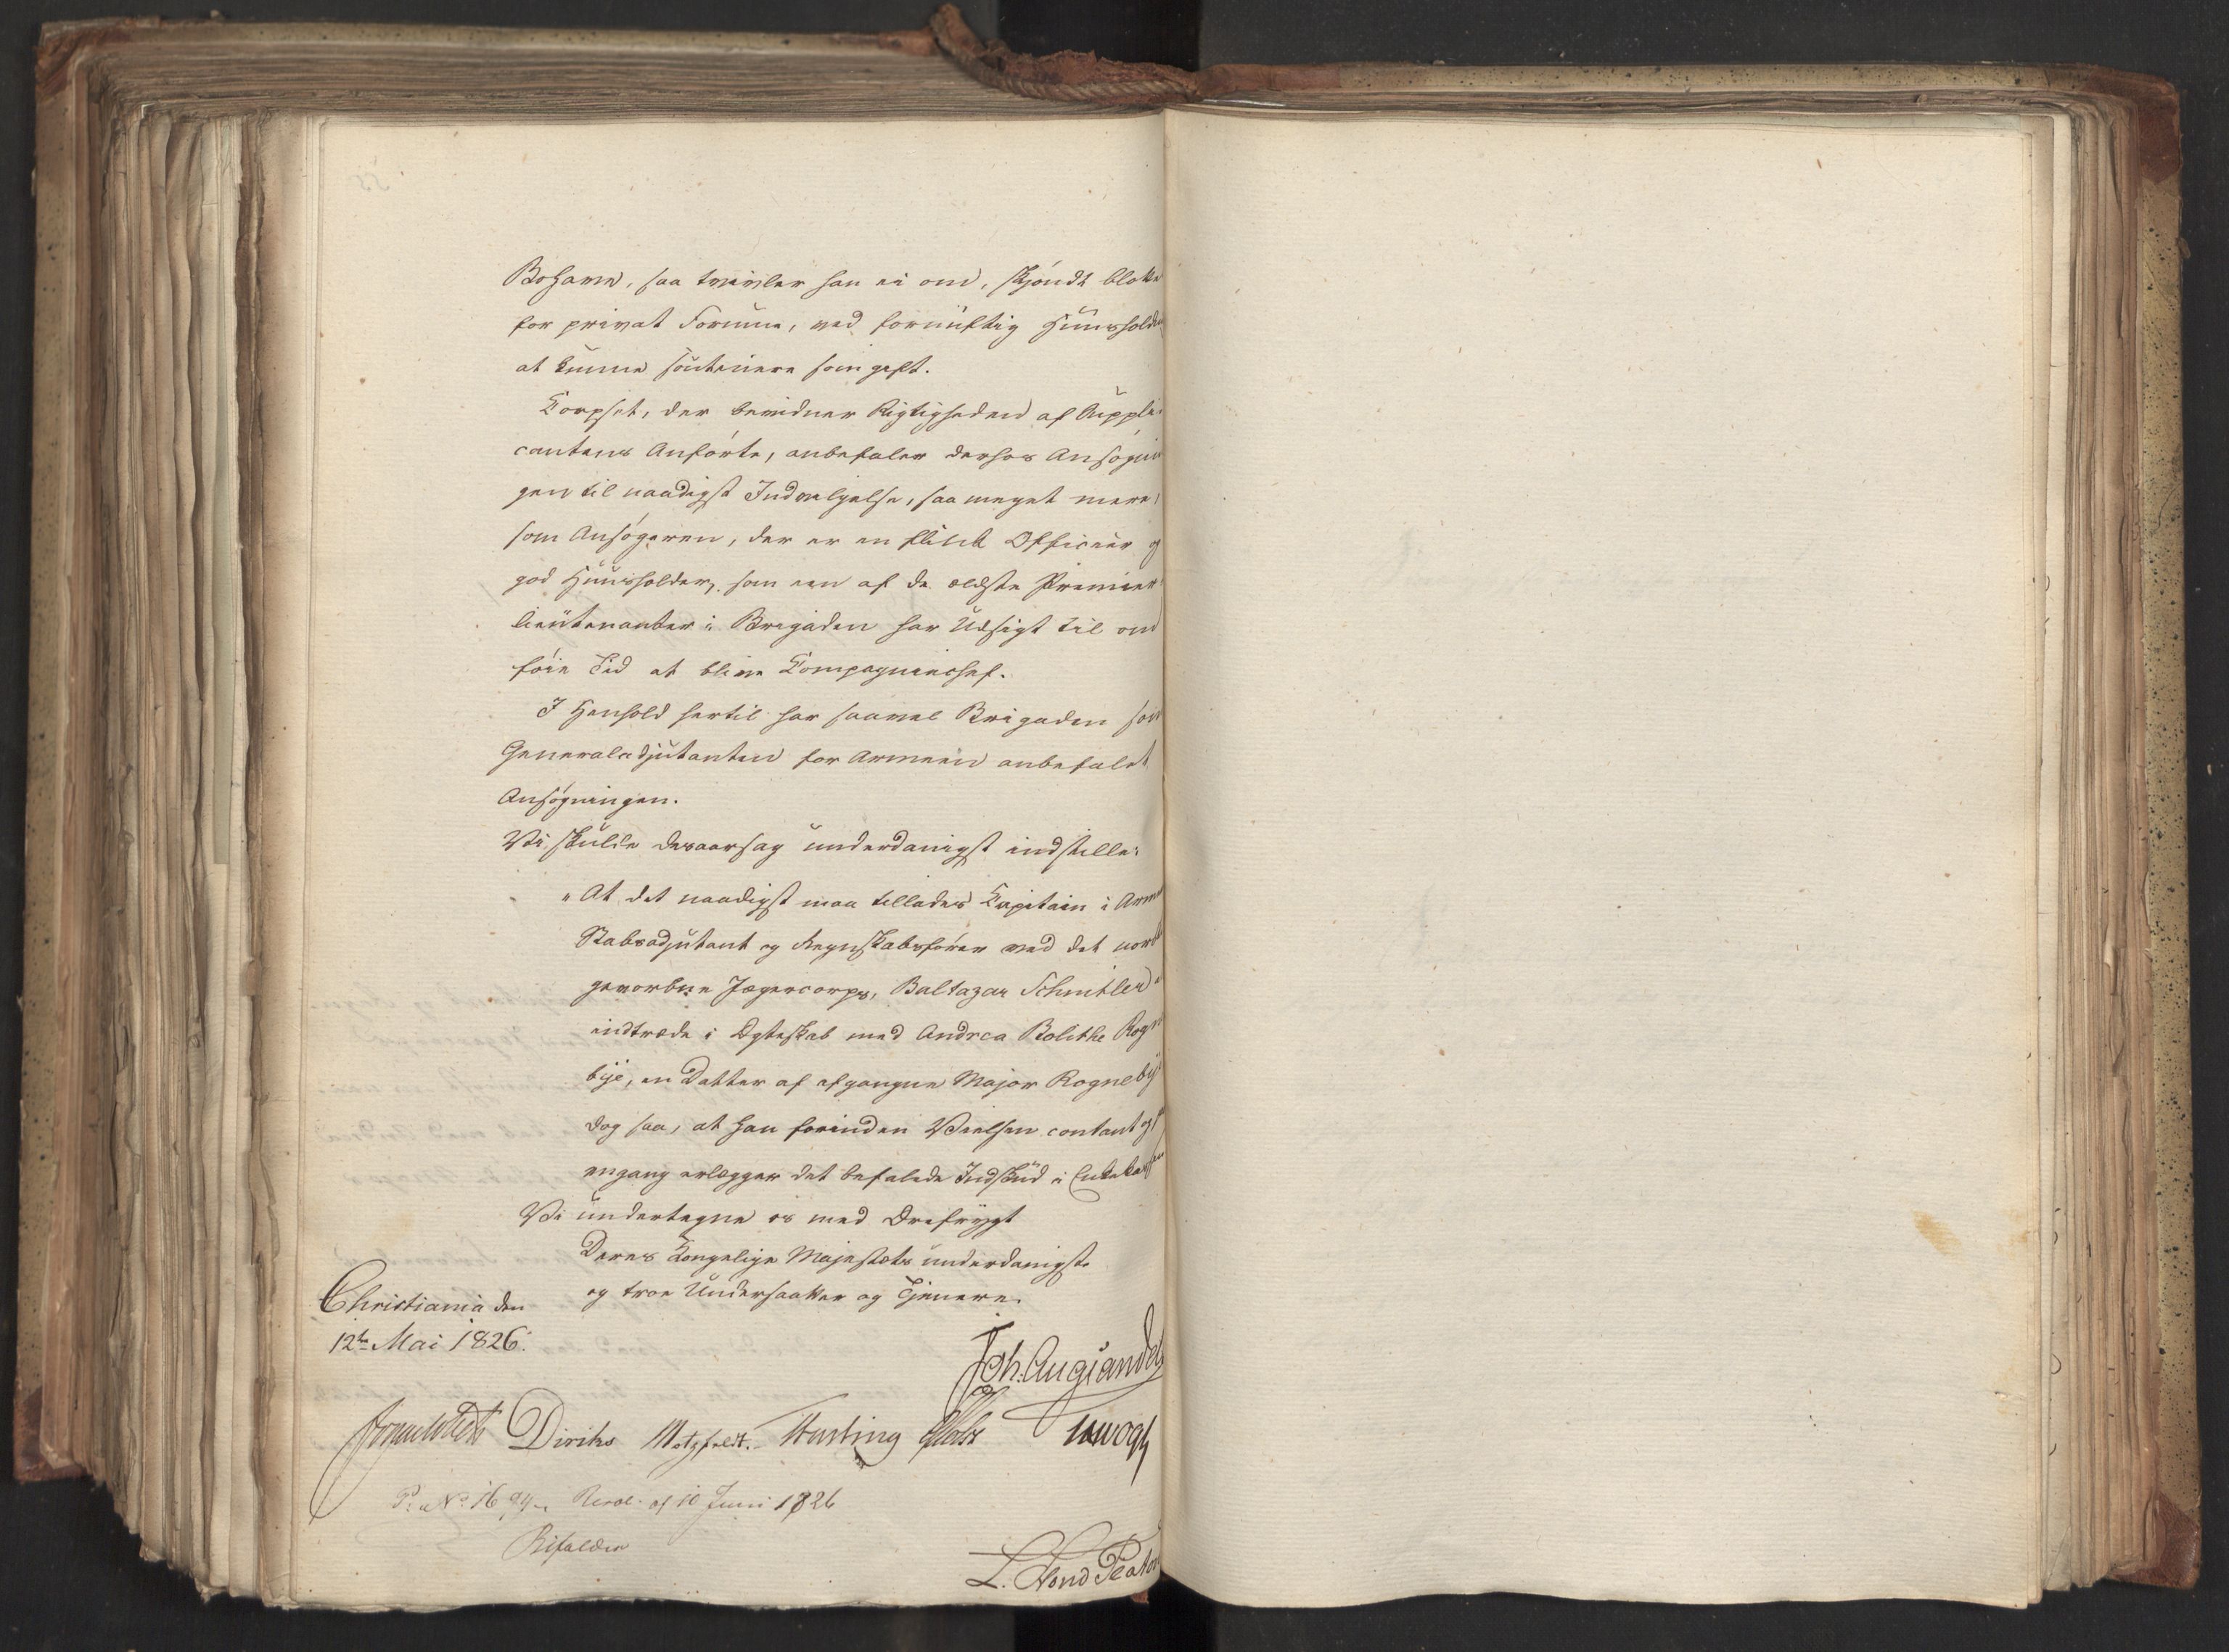 Bohave, saa tvivler han ei om, skjöndt blottet
for privat Formue, ved fornüftig Huusholdning
at kunne soutenere som gift.
Corpset, der bevidner Rigtigheden af Suppli-
cantens Anförte, anbefaler derhos Ansögnin
gen til naadigst Indvelgelse, saa meget mere,
som Ansögeren, der er en flink Officeer og
god Huusholder, som een af de ældste Premier-
lieutenanter i Brigaden har Udsigt til om
föie Tid at blive Compagniechef.
I Henhold hertil har saavel Brigaden som
Generaladjutanten for Armeen anbefalet
Ansögningen.
Vi skulde desaarsag underdanigst indstille:
"At det naadigst maa tillades Capitain i Armeen
Stabsadjutant og Regnskabsförer ved det norske
gevorbne Jægercorps, Baltazar Schnitler at
indtræde i Ægteskab med Andrea Bolethe Rogne
bÿe, en Datter af afgangne Major Rognebÿe
dog saa, at han forinden Vielsen contant og paa
engang erlægger det befalede Indskud i Enkekassen
Vi undertegne os med Ærefrygt
Deres Kongelige Majestæts underdanigste
og troe Undersaatter og Tjenere.
Christiania den
12te Mai 1826.
Joh. Aug. Sandels
Diriks Motzfeldt. Hersting Holst
P. No. 16 Resol. af 10 Juni 1826
Bifalden